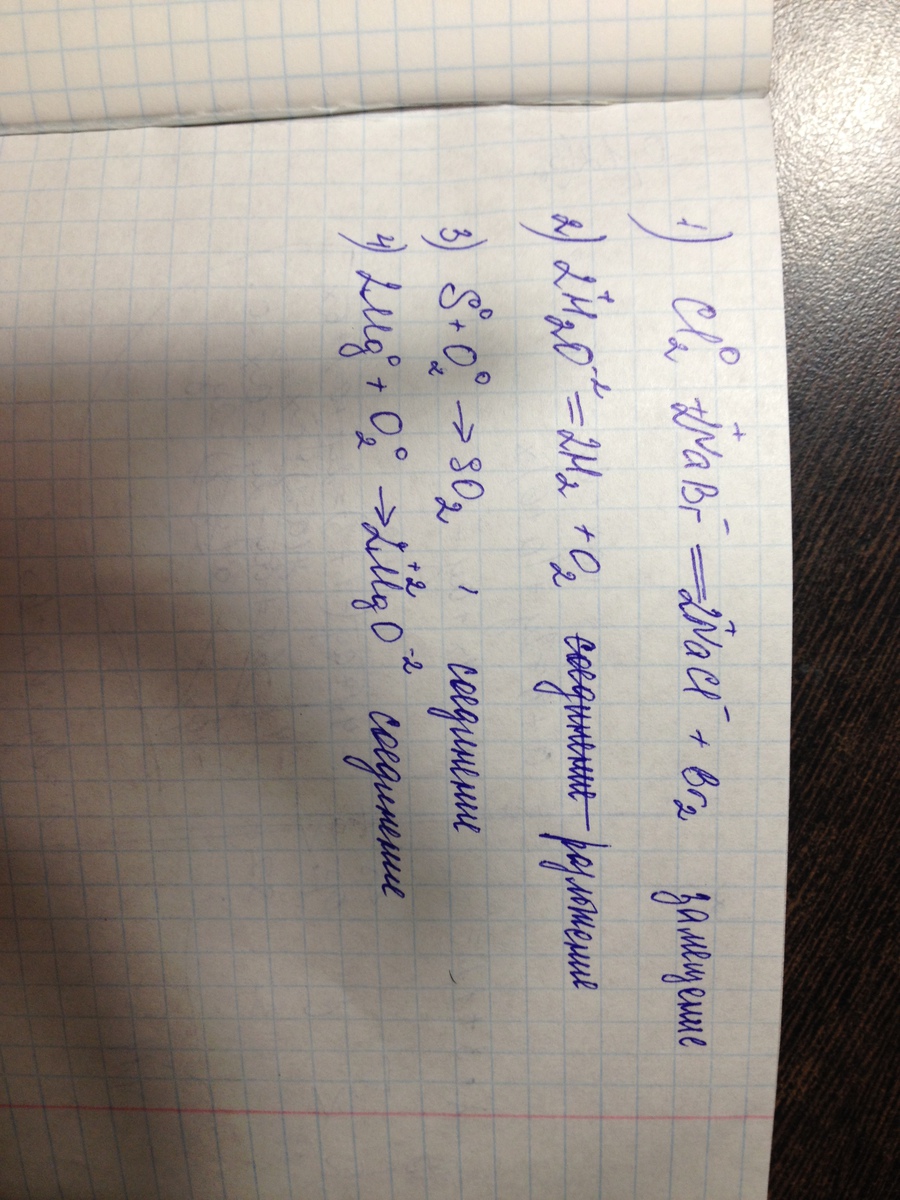 1) Cl₂⁰ + 2Na⁺Br⁻ = 2Na⁺Cl⁻ + Br₂ замещение
2) 2H₂⁺O⁻² = 2H₂ + O₂ ~~соединение~~ разложение
3) S⁰ + O₂⁰ → SO₂ , соединение
4) 2Mg⁰ + O₂⁰ → 2Mg⁺²O⁻² соединение